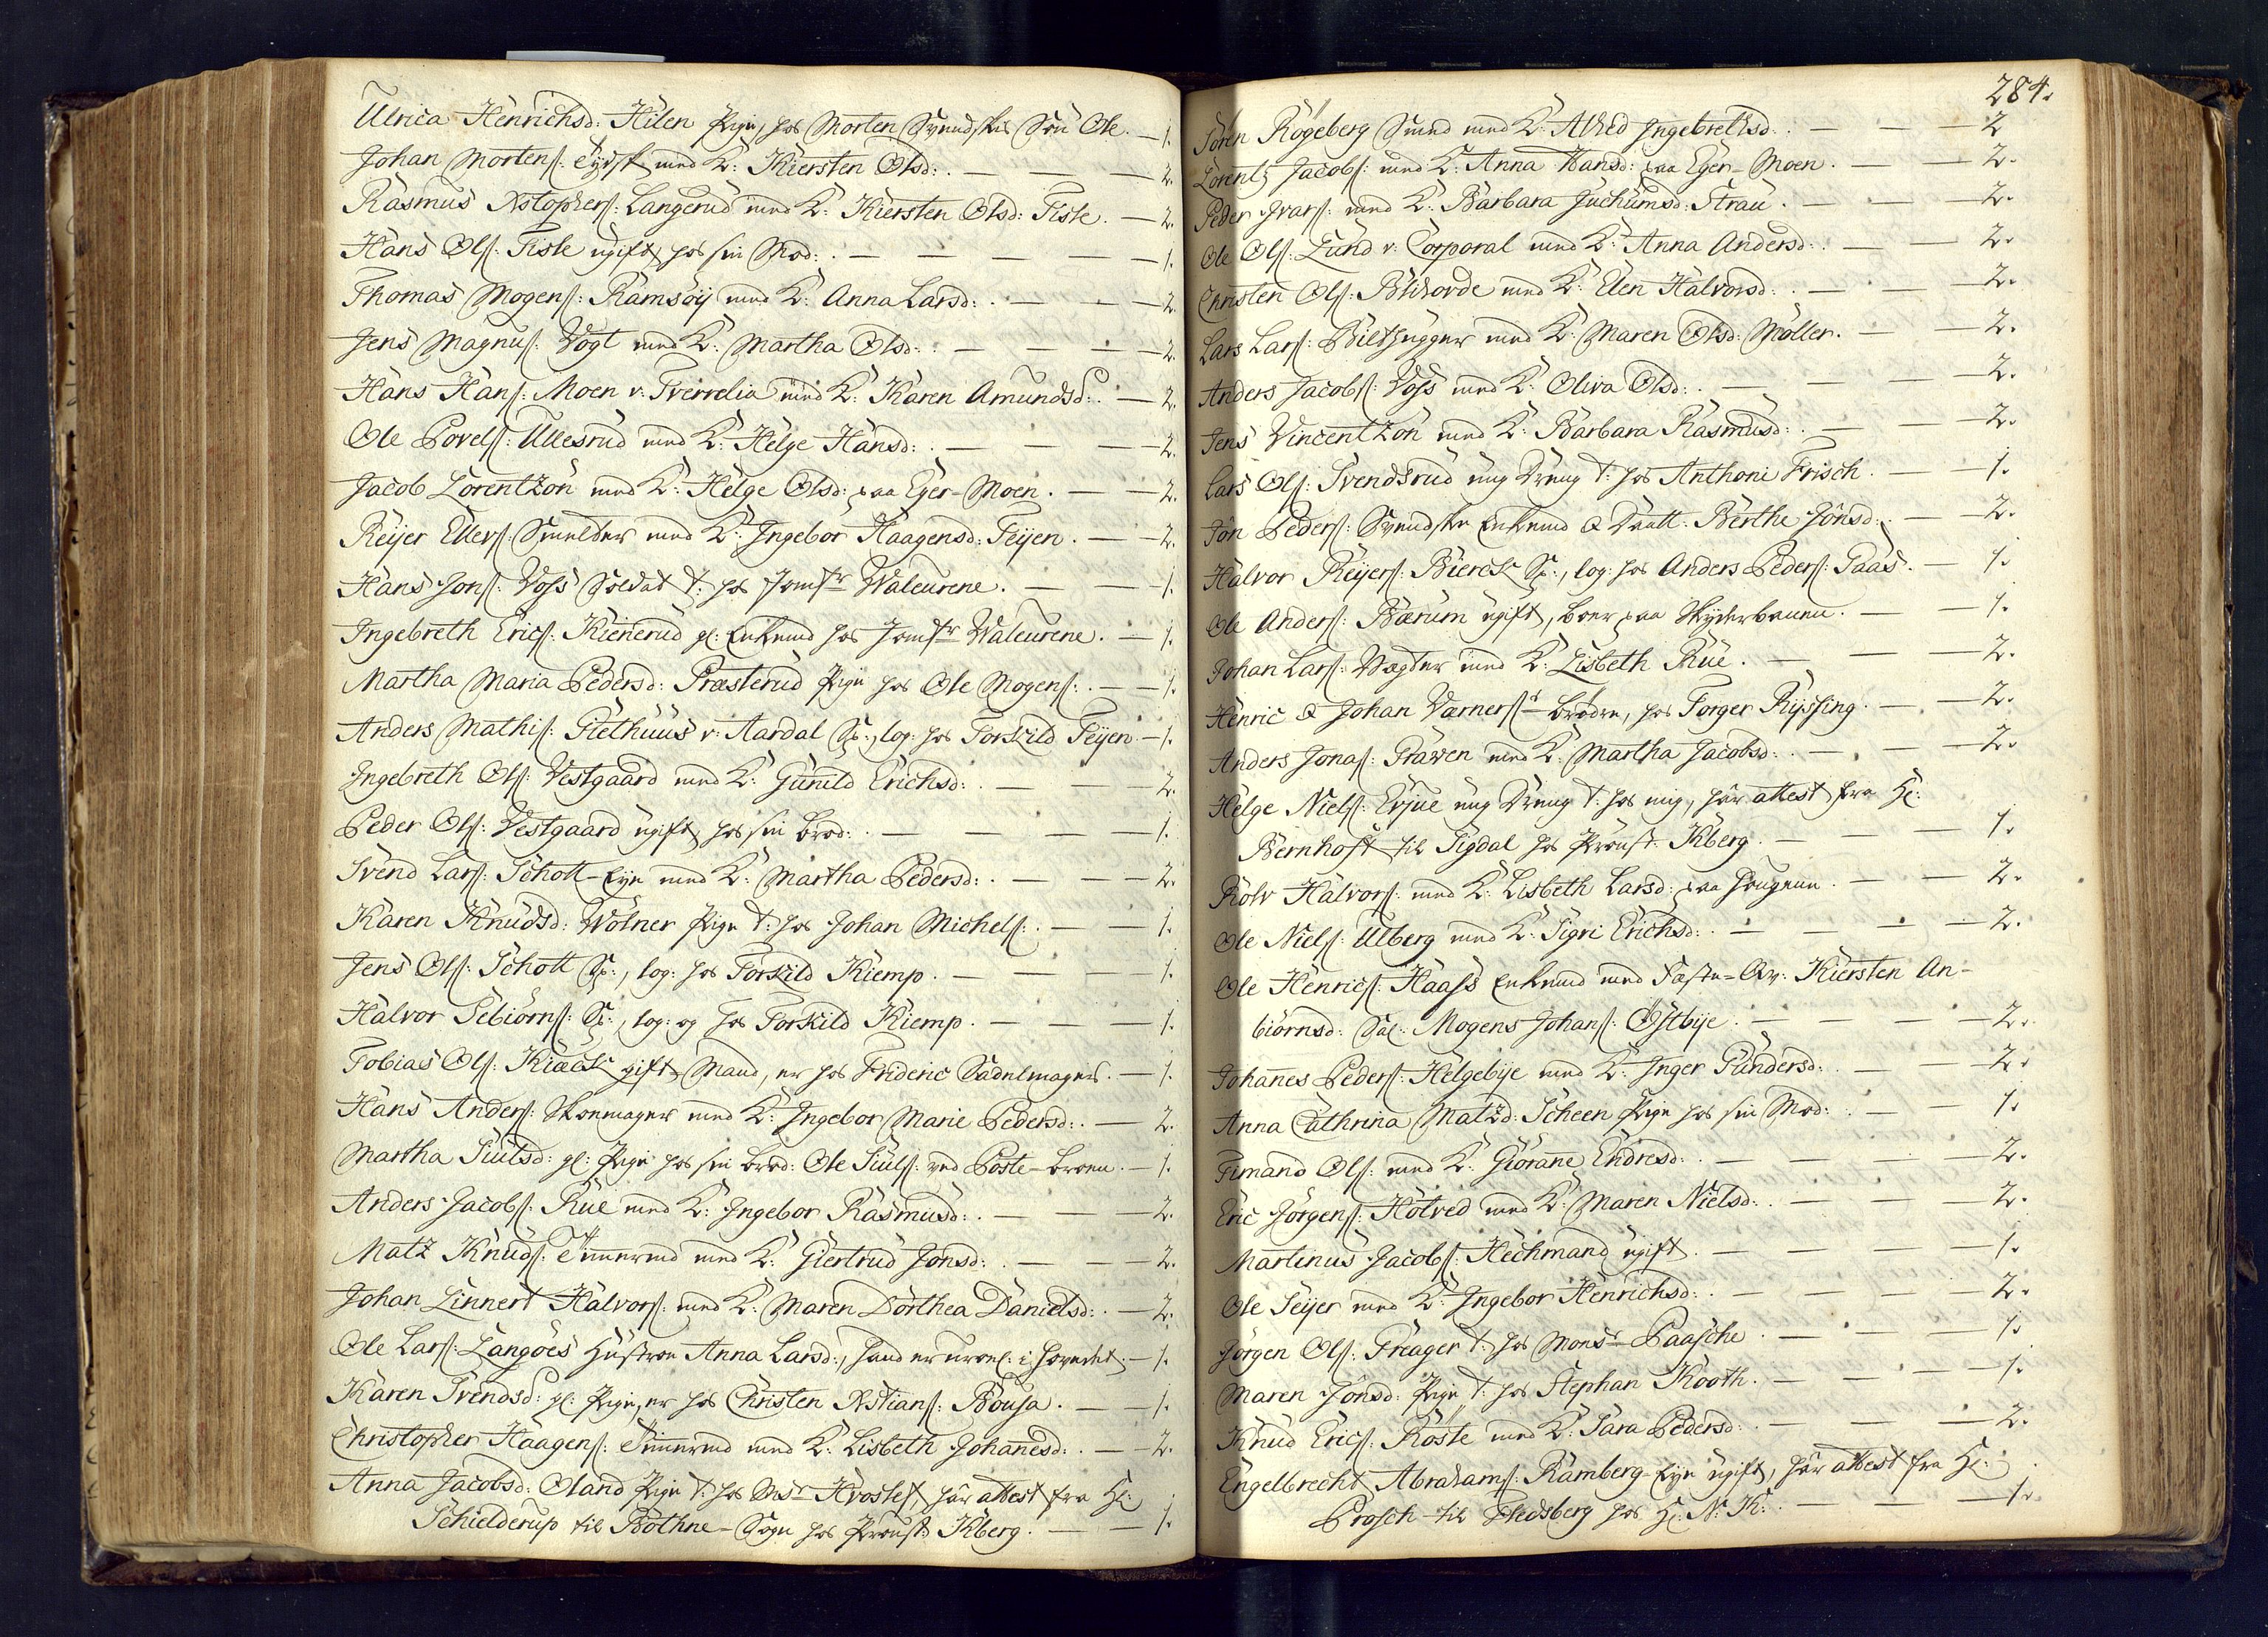 Ulrica Henrichsd: Hilen Pige, hos Morten Svendskes Sön Ole. — 1.
Johan Mortens: Tydsk med K: Kiersten Olsd: . — — — 2.
Rasmus Xstophers: Langerud med K: Kiersten Olsd: Fisle. — 2.
Hans Ols: Fisle ugift, hos sin Mod: . — — — — — 1.
Thomas Mogens: Ramsöÿ med K: Anna Larsd: . — — — 2.
Jens Magnus: Vogt med K: Martha Olsd: . — — — 2.
Hans Hans: Moen v: Tverrelia med K: Karen Amundsd: . — 2.
Ole Povels: Ullesrud med K: Helge Hansd: . — — — 2.
Jacob Lorentzön med K: Helge Olsd: paa Eger-Moen. — — 2.
Reÿer Ellefs: Smelder med K: Ingebor Haagensd: Teÿen. — — 2.
Hans Jons: Voss Soldat t: hos Jomfr Waleurene. — — 1.
Ingebreth Erics: Kienerud gl: Enkemd hos Jomfr Waleurene. — 1.
Martha Maria Pedersd: Præsterud Pige hos Ole Mogens: . — — 1.
Anders Mathis: Giethuus v: Aardal Sp:, log: hos Torskild Teÿen. — 1.
Ingebreth Ols: Vestgaard med K: Gunild Erichsd: . — — — 2.
Peder Ols: Vestgaard ugift, hos sin brod: . — — — — 1.
Svend Lars: Schott-Eÿe med K: Martha Pedersd: . — — — 2.
Karen Knudsd: Wölner Pige t: hos Johan Michels: . — — 1.
Jens Ols: Schott Sp:, log: hos Torskild Kiemp. — — — 1.
Halvor Sebiörns: Sp:, log: og hos Torskild Kiemp. — — — 1.
Tobias Ols: Kiæck gift Mand, er hos Frideric Sadelmager. — 1.
Hans Anders: Skoemager med K: Ingebor Marie Pedersd: . — 2.
Martha Siulsd: gl: Pige hos sin brod: Ole Siuls: ved Poste-broen. — 1.
Anders Jacobs: Rue med K: Ingebor Rasmusd: . — — — 2.
Matz Knuds: Tömermd med K: Giertrud Jonsd: . — — — 2.
Johan Linnert Halvors: med K: Maren Dorthea Danielsd: . — 2.
Ole Lars: Langöes Hustroe Anna Larsd:, hand er uroel: i hovedet. — 1.
Karen Svendsd: gl: Pige, er hos Christen Xstians: Bousa. — — 1.
Christopher Haagens: Tömermd med K: Lisbeth Johannesd: . — — 2.
Anna Jacobsd: Oland Pige t: hos Msr Hvoslef, har attest fra Hr:
Schielderup til Bothne-Sogn hos Provst Kberg. — — 1.
284.
Sören Rögeberg Smed med K: Alhed Ingebrethsd: . — — — 2
Lorentz Jacobs: med K: Anna Hansd: paa Eger-Moen. — — 2.
Peder Ivars: med K: Barbara Juchumsd: Strau. — — — 2.
Ole Ols: Lund v: Corporal med K: Anna Andersd: . — — 2.
Christen Ols: Blikovde med K: Elen Halvorsd: . — — — 2.
Lars Lars: Bilthugger med K: Maren Olsd: Möller. — — 2.
Anders Jacobs: Voss med K: Oliva Olsd: . — — — 2.
Jens Vincentzön med K: Barbara Rasmusd: . — — — 2.
Lars Ols: Svendsrud ung Dreng t: hos Anthoni Frisch. — — 1.
Jön Peders: Svendske Enkemd & Daatt: Berthe Jönsd: . — — 2.
Halvor Reÿers: Bierck Sp:, log: hos Anders Peders: Saas. — 1.
Ole Anders: Bærum ugift, boer paa Skyderbanen. — — 1.
Johan Lars: Vægter med K: Lisbeth Rue. — — — 2.
Henric & Johan Værners: brödre, hos Torger Ryssing. — — 2.
Anders Jonas: Graven med K: Martha Jacobsd: . — — — 2.
Helge Niels: Evjue ung Dreng t: hos mig, har attest fra Hr:
Bernhoft til Sigdal hos Provst Kberg. — — — — 1.
Rolv Halvors: med K: Lisbeth Larsd: paa Hougene. — — 2.
Ole Niels: Ulberg med K: Sigri Erichsd: . — — — — 2.
Ole Henrics: Haass Enkemd med Fæste-Qv: Kiersten An-
biörnsd: Sal: Mogens Johans: Östbÿe. — — — — 2.
Johannes Peders: Helgebÿe med K: Inger Gundersd: . — — 2.
Anna Cathrina Matzd: Scheen Pige hos sin Mod: . — — 1.
Timand Ols: med K: Giörane Endresd: . — — — 2.
Eric Jörgens: Hotved med K: Maren Nielsd: . — — — 2.
Martinus Jacobs: Hechmand ugift. — — — — 1.
Ole Seÿer med K: Ingebor Henrichsd: . — — — — 2.
Jörgen Ols: Greager t: hos Monsr Paasche. — — — 1.
Maren Jonsd: Pige t: hos Stephan Kooth. — — — 1.
Knud Erics: Röste med K: Sara Pedersd: . — — — 2.
Engelbrecht Abrahams: Ramberg-Eÿe ugift, har attest fra Hr:
Brosch til Flesberg hos Hr: N: K: . — — — 1.